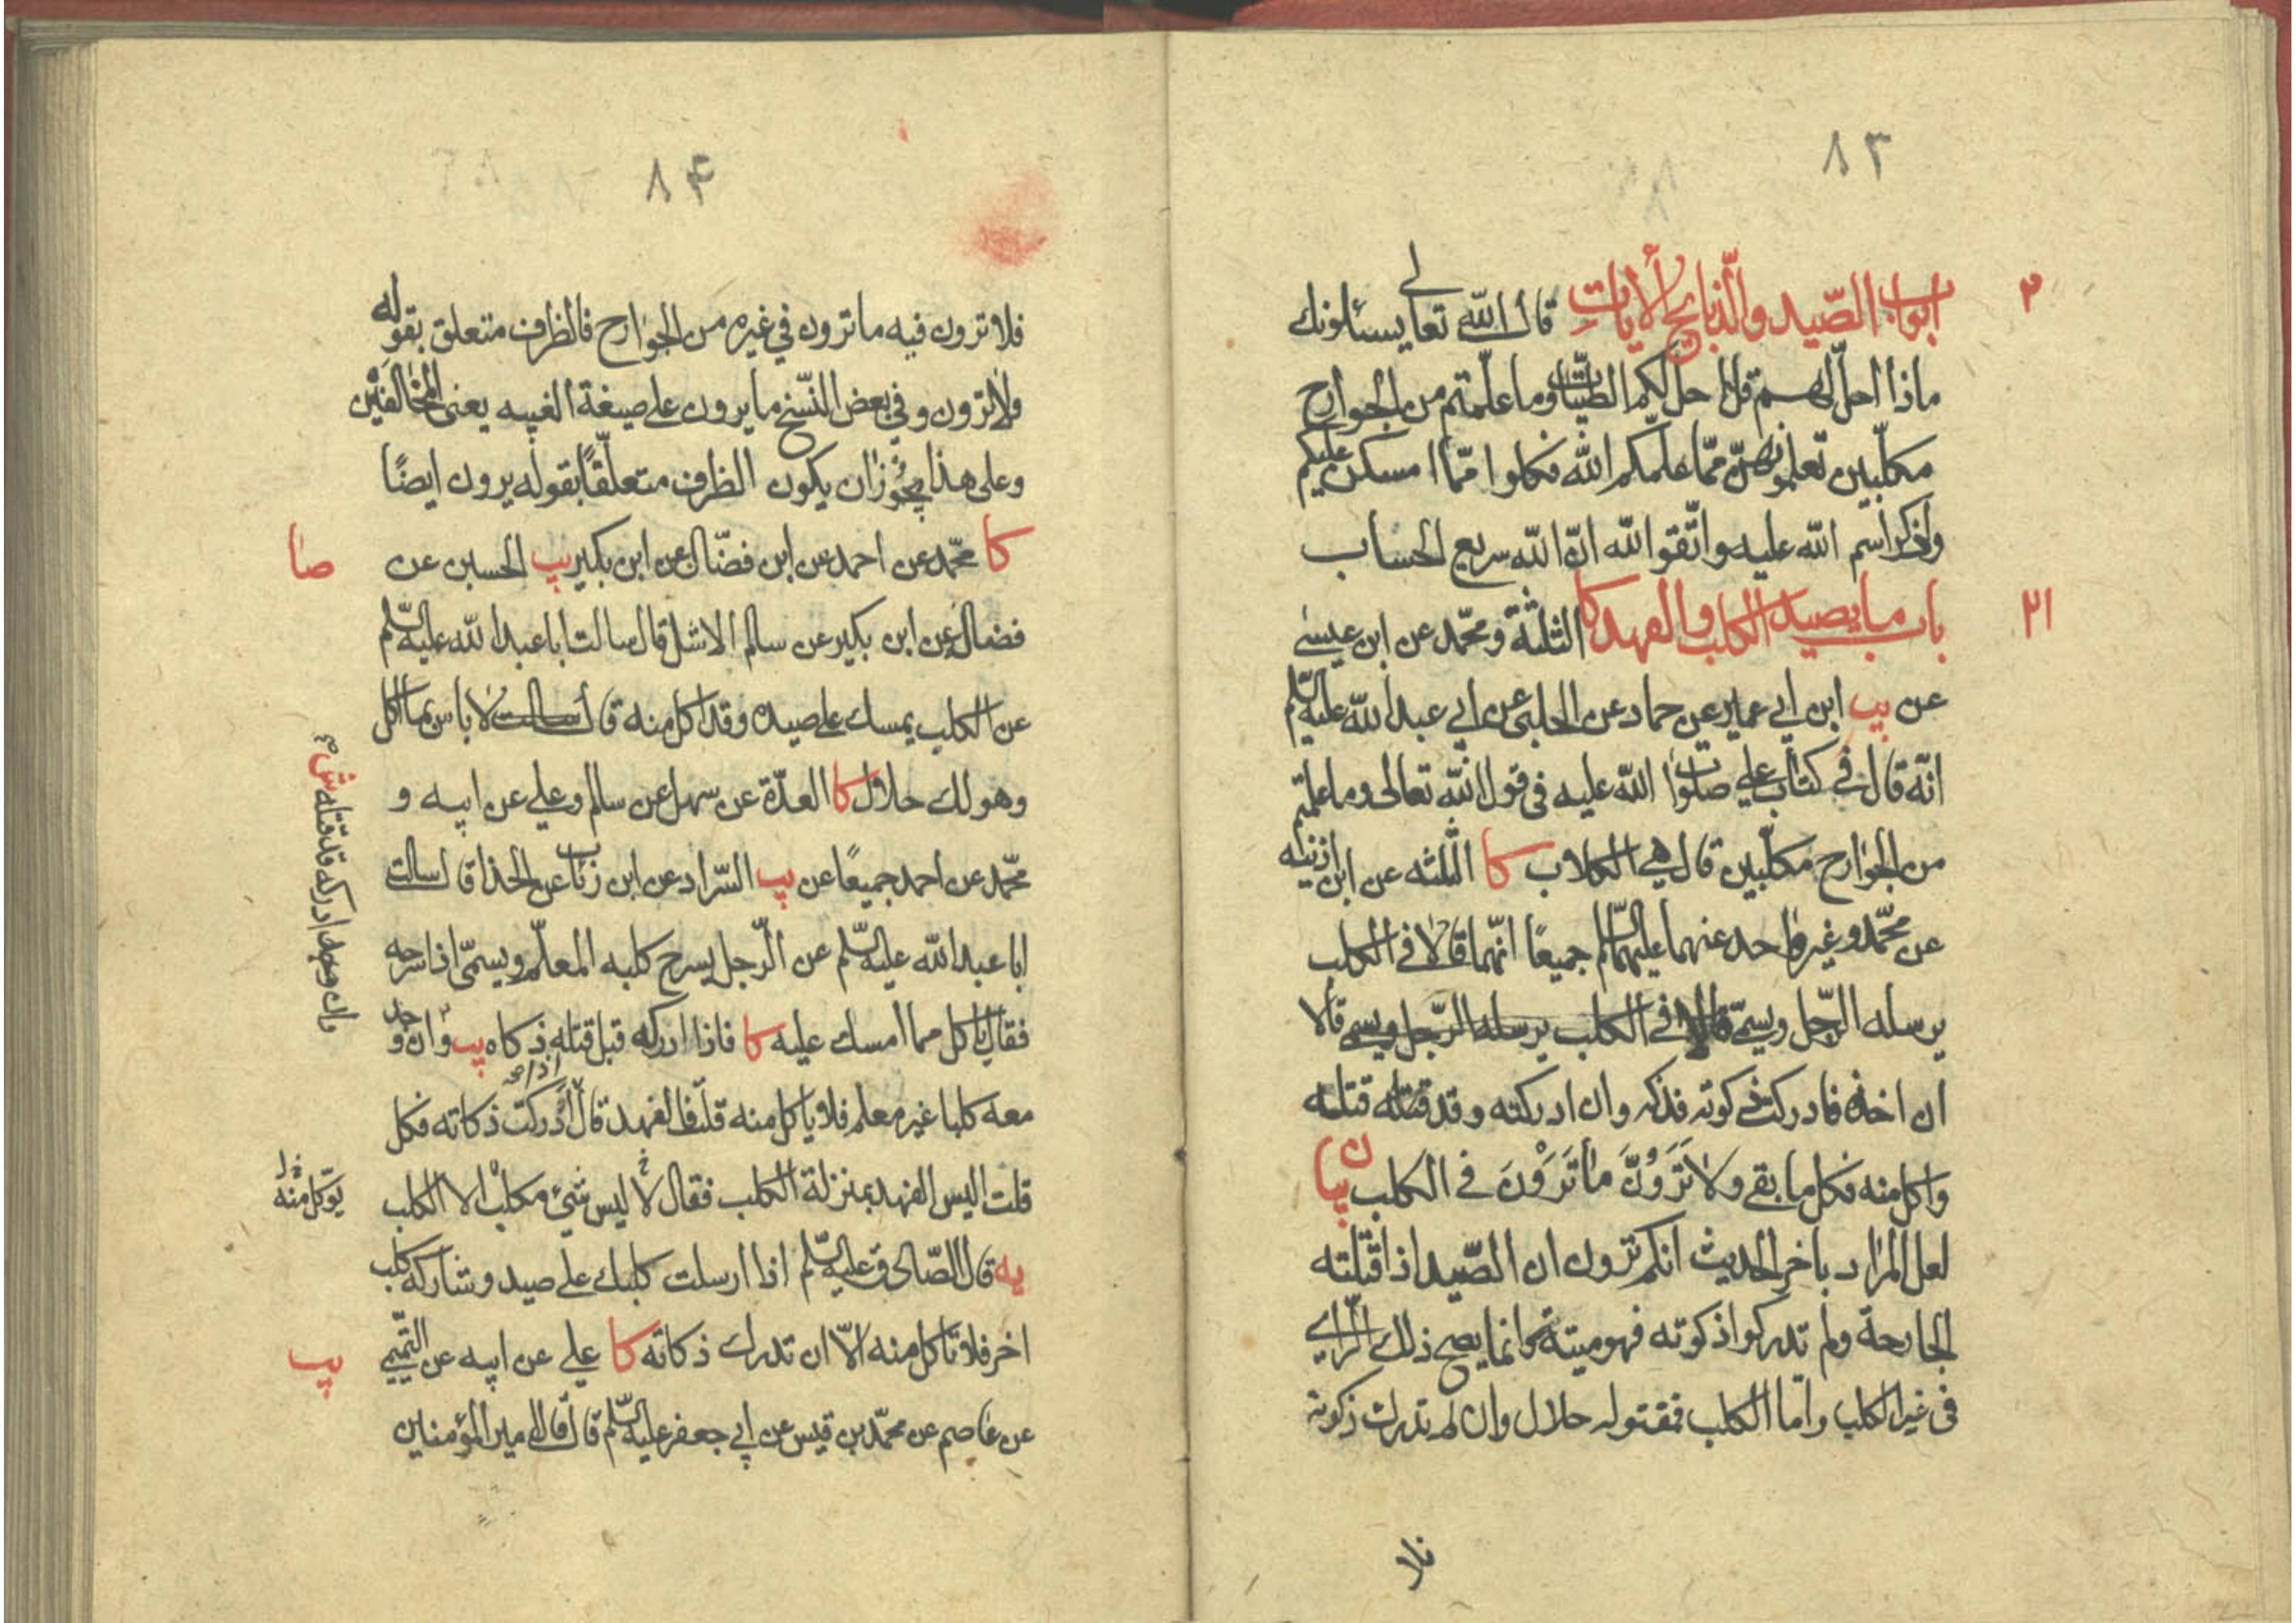 ٨٣
٢
ابواب الصّيد والذّبايح الآيات قال الله تعالى يسئلونك
ماذا احلّ لهم قل احل لكم الطيّبات وما علّمتم من الجوارح
مكلّبين تعلمونهنّ ممّا علّمكم الله فكلوا ممّا امسكن عليكم
واذكروا اسم الله عليه واتّقوا الله انّ الله سريع الحساب
٢١
باب ما يصيد الكلب والفهد كا الثلثة ومحمّد عن ابن عيسى
عن يب ابن ابي عمير عن حماد عن الحلبى عن ابي عبد الله عليه السّلم
انّه قال فى كتاب علي صلوات الله عليه فى قول الله تعالى وما علمتم
من الجوارح مكلّبين قال هى الكلاب كا الثلثه عن ابن اذينه
عن محمّد وغير واحد عنهما عليهما السّلم جميعًا انّهما قالا فى الكلب
يرسله الرّجل ويسمّى قالا فى الكلب يرسله الرّجل ويسمى قالا
ان اخذه فادركت ذكوته فذكه وان ادركته وقد قتله قتلته
واكل منه فكل ما بقى ولا تَرَوُنَّ ما تَرَوْنَ فى الكلب بيان
لعل المراد باخر الحديث انكم ترون ان الصّيد اذا قتلته
الجارحة ولم تدركوا ذكوته فهو ميتة وانما يصح ذلك الرّاي
فى غير الكلب وامّا الكلب فمقتوله حلال وان لم تدرك ذكوته
فلا
٨٤
فلا ترون فيه ما ترون في غيره من الجوارح فالظرف متعلق بقوله
ولا ترون وفي بعض النّسخ ما يرون على صيغة الغيبه يعنى المخالفين
وعلى هذا يجوز ان يكون الظرف متعلّقًا بقوله يرون ايضًا
كا محمّد عن احمد عن ابن فضّال عن ابن بكير يب الحسين عن
صا
فضال عن ابن بكير عن سالم الاشل قال سالت ابا عبد الله عليه السّلم
عن الكلب يمسك على صيده وقد اكل منه قال سالت لا باس بما اكل
وهو لك حلال كا العدّة عن سهل عن سالم وعلي عن ابيه و
محمّد عن احمد جميعًا عن يب السّراد عن ابن رئاب عن الحذا قال سالت
ابا عبد الله عليه السّلم عن الرّجل يسرح كلبه المعلّم ويسمّى اذا سرحه
فقال ياكل مما امسك عليه كا فاذا ادركه قبل قتله ذكاه يب وان وجد
معه كلبا غير معلم فلا ياكل منه قلت فالفهد قال اذا ادركت ذكاته فكل
قلت اليس الفهد بمنزلة الكلب فقال لا ليس شئ مكلب الا الكلب
يؤكل منه
يه قال الصّادق عليه السّلم اذا ارسلت كلبك على صيد وشاركه كلب
اخر فلا تاكل منه الاّ ان تدرك ذكاته كا علي عن ابيه عن التّميمي
يب
عن عاصم عن محمّد بن قيس عن ابي جعفر عليه السّلم قال قال امير المؤمنين